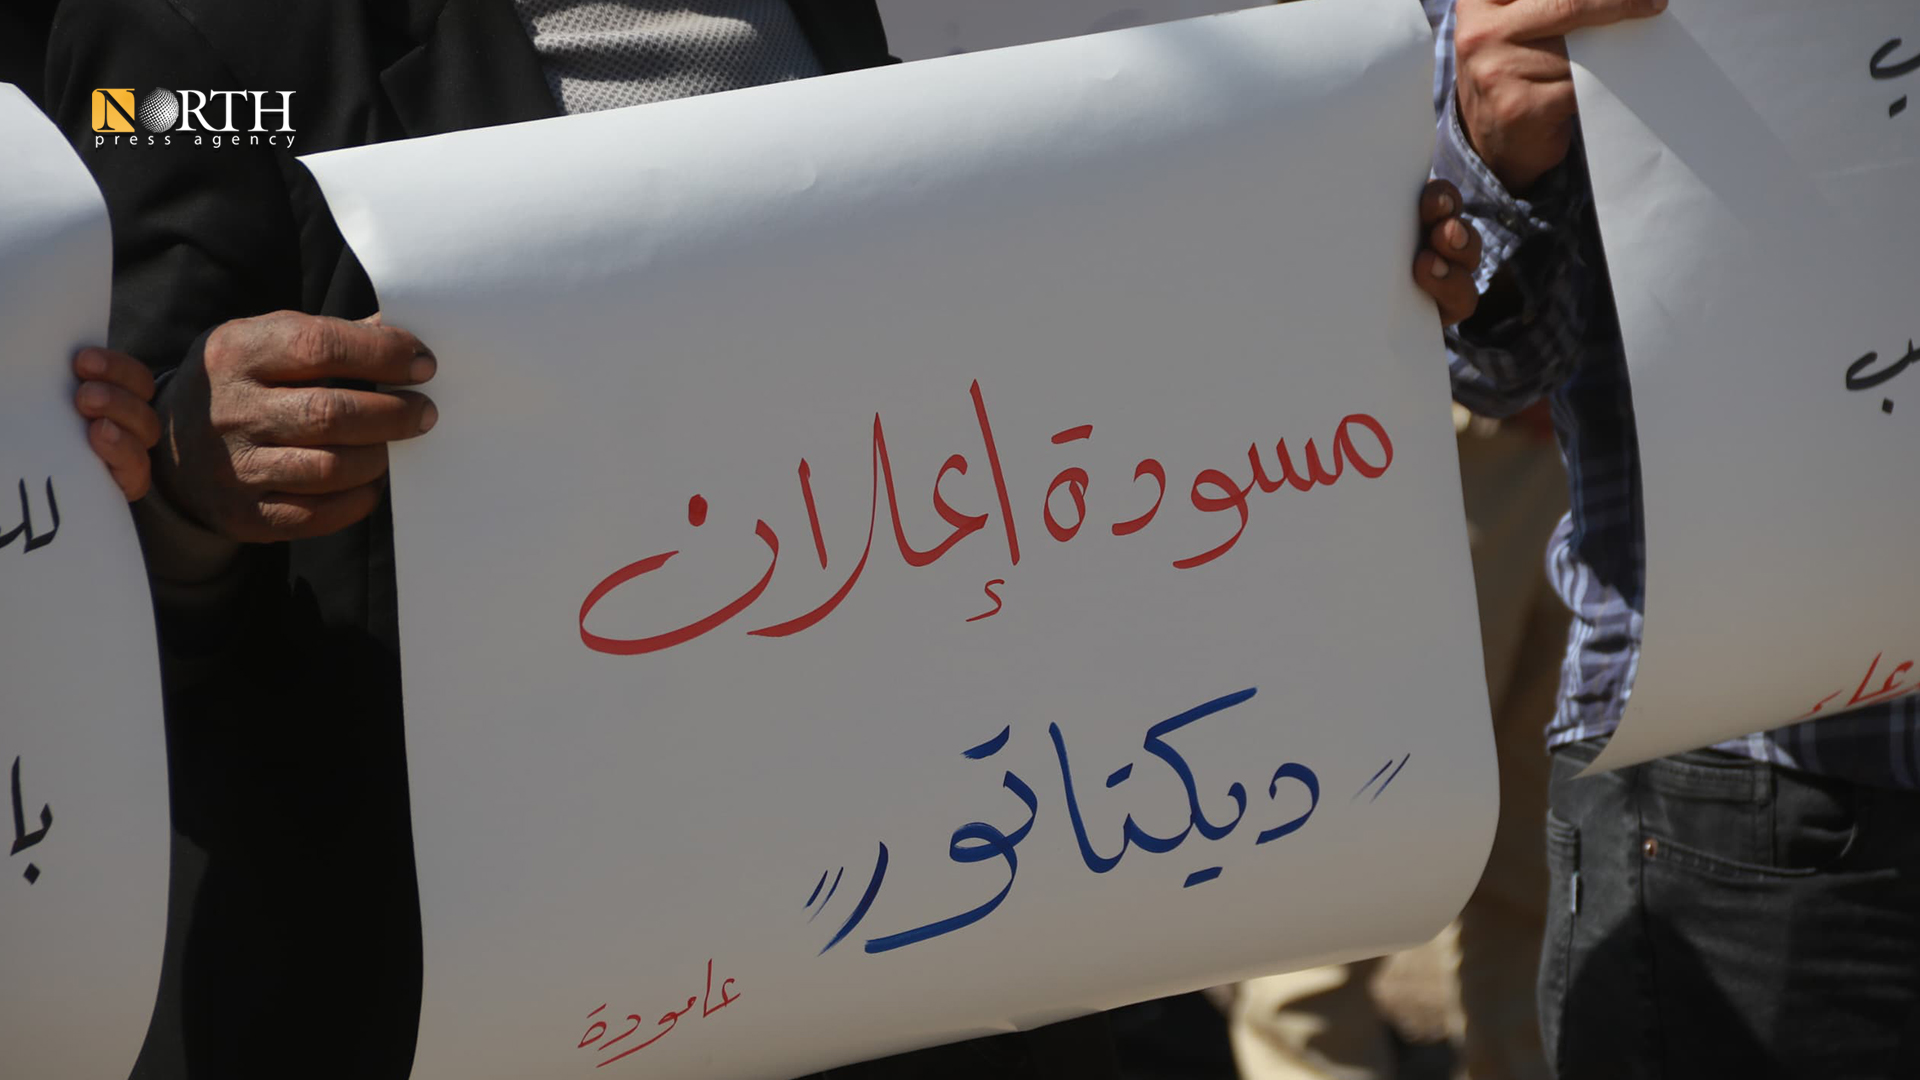 NORTH
press agency
مسودة إعلان
"ديكتاتور"
عامودة